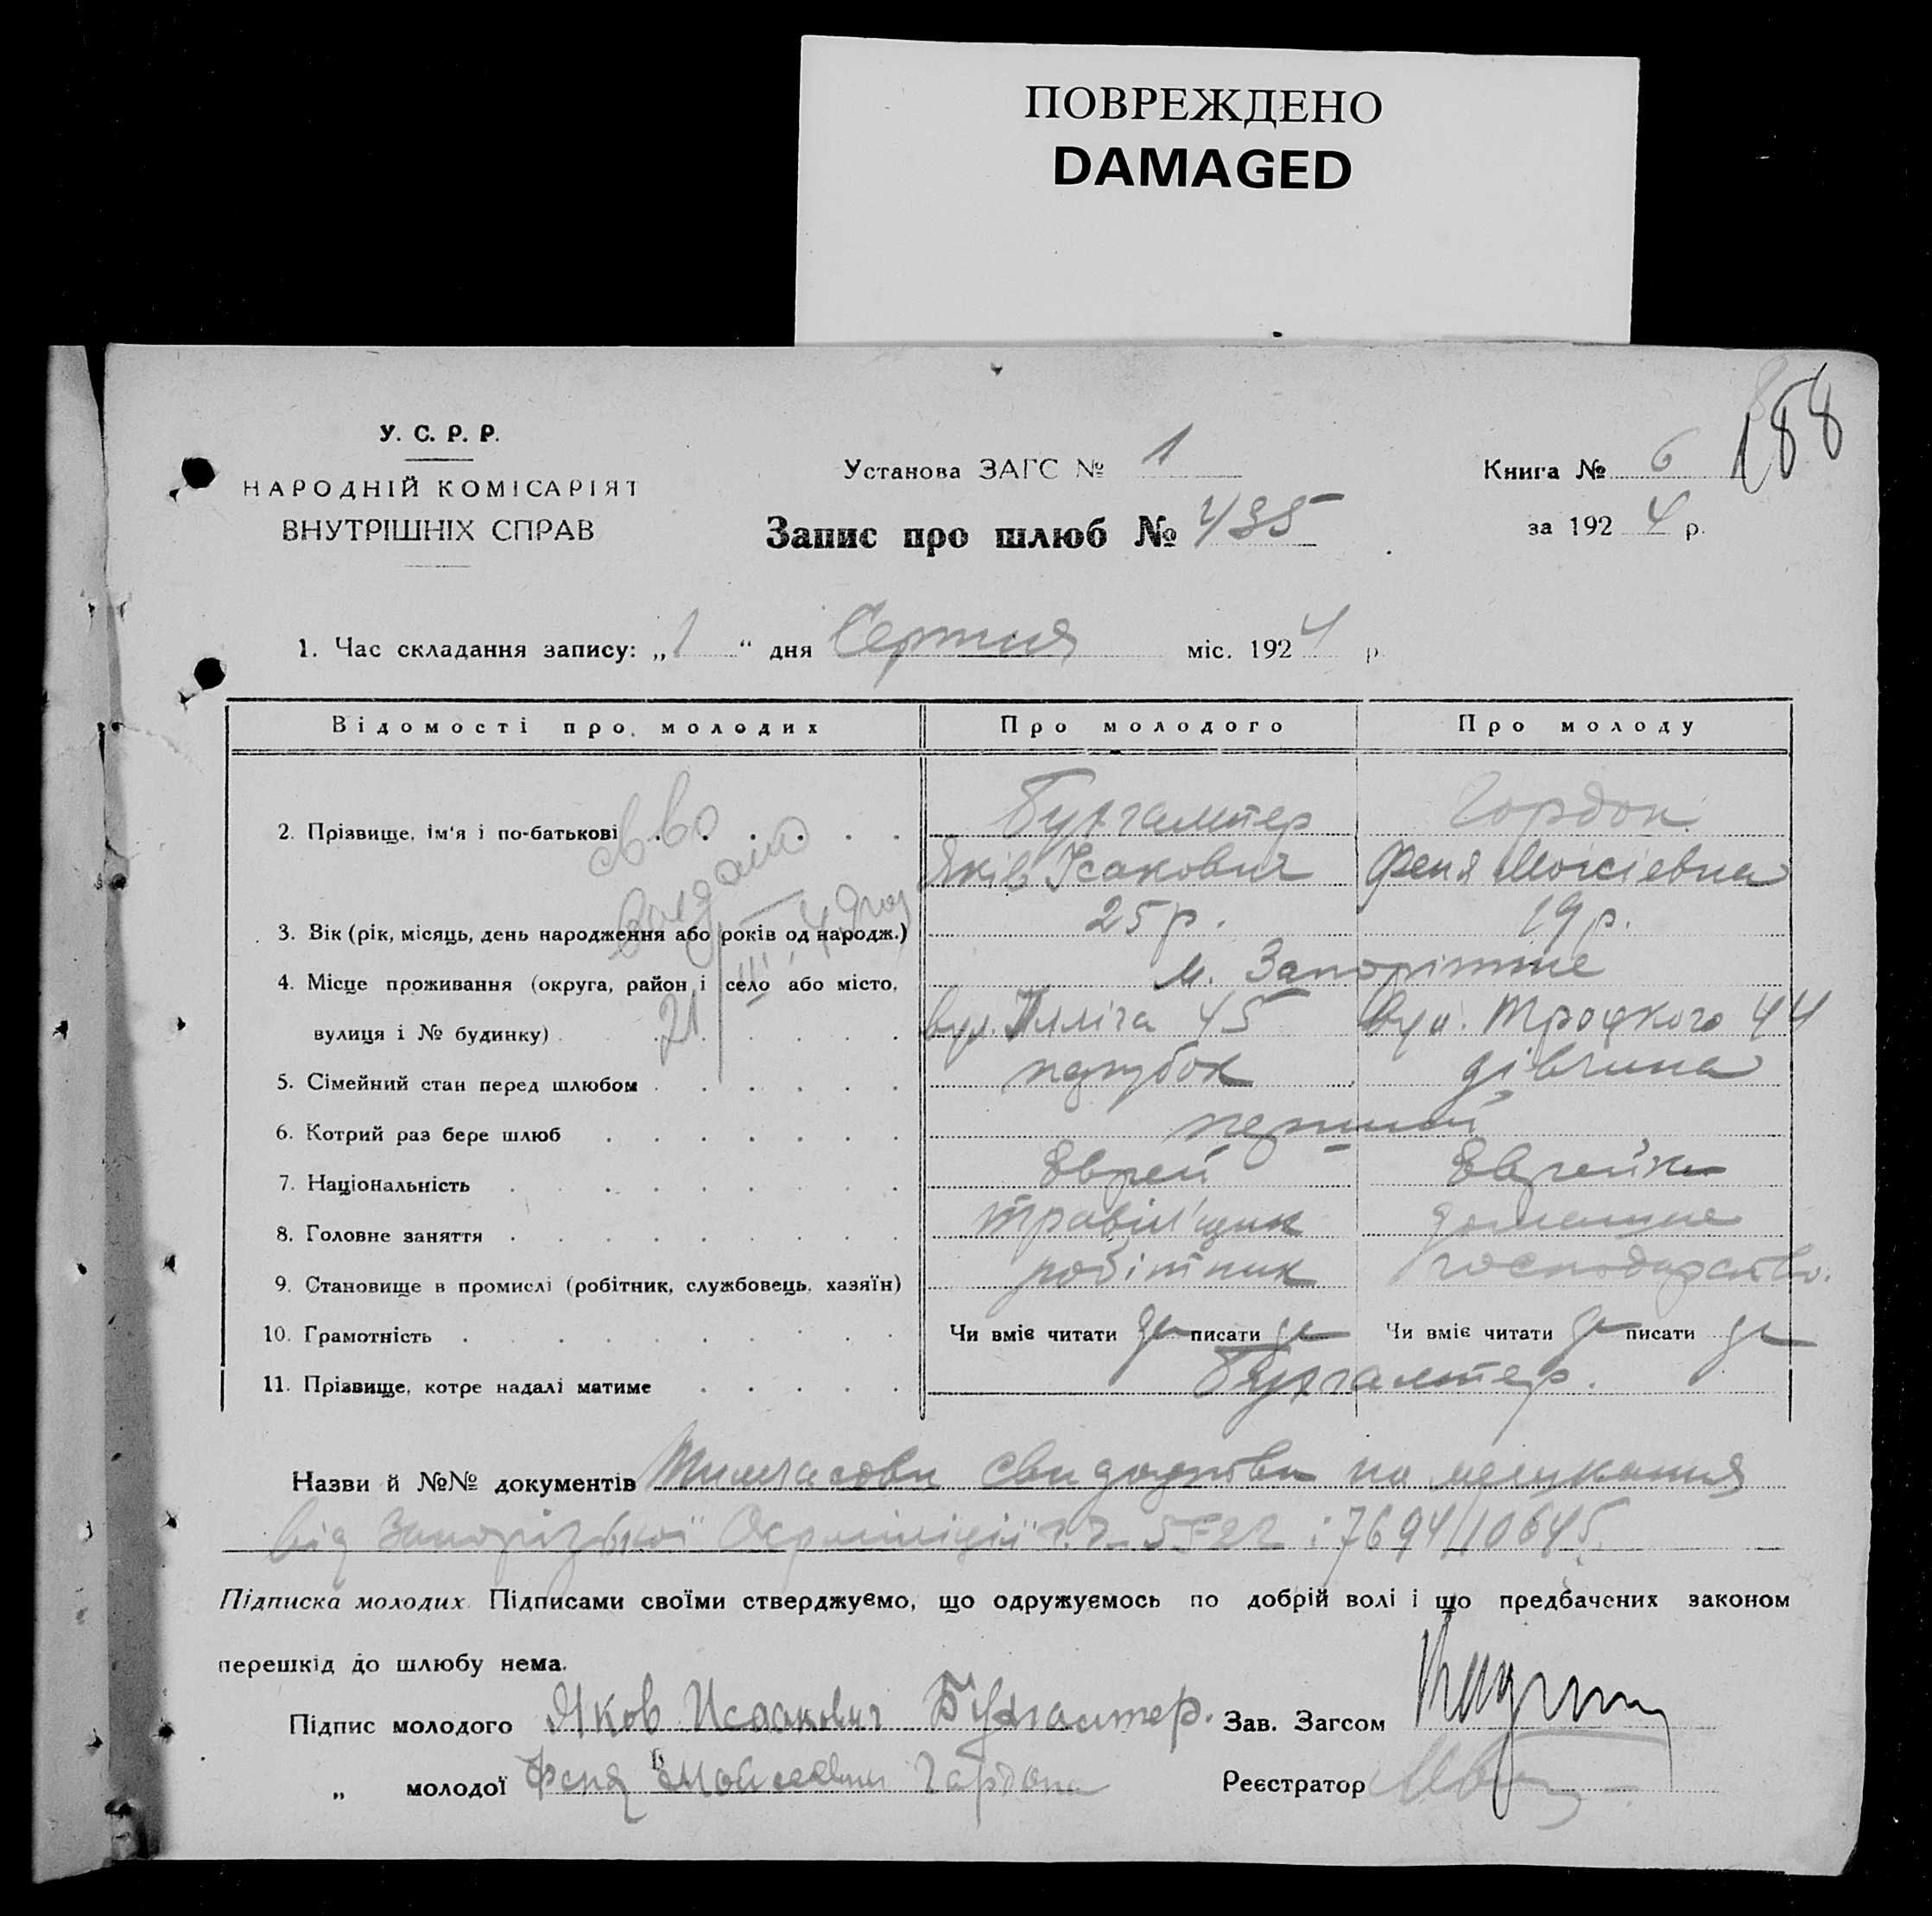 ПОВРЕЖДЕНО
DAMAGED
188
У. С. Р. Р.
НАРОДНІЙ КОМІСАРІЯТ
ВНУТРІШНІХ СПРАВ
Установа ЗАГС № 1
Запис про шлюб № 435
Книга № 6
за 1924 р.
1. Час складання запису: „1“ дня Серпня міс. 1924 р.
Відомості про молодих Про молодого Про молоду
2. Прізвище, ім'я і по-батькові Бухгалтер Гордон
Яків Ісакович Феня Мойсіевна
3. Вік (рік, місяць, день народження або років од народж.) 25 р. 19 р.
4. Місце проживання (округа, район і село або місто, м. Запоріжже
вулиця і № будинку) вул. Ілліча 45 вул. Троцького 44
5. Сімейний стан перед шлюбом парубок дівчина
6. Котрий раз бере шлюб перший
7. Національність Еврей Еврейка
8. Головне заняття домашне
9. Становище в промислі (робітник, службовець, хазяїн) робітник господарство.
10. Грамотність Чи вміє читати да писати да Чи вміє читати да писати да
11. Прізвище, котре надалі матиме Бухгалтер.
Видано
21
Назви й №№ документів Тимчасови свидоцтва на мешкання
від Запорізької Окрміліції 5522 і 7694/10645
Підписка молодих. Підписами своїми стверджуємо, що одружуємось по добрій волі і що предбачених законом
перешкід до шлюбу нема.
Підпис молодого Яков Исаакович Бухгалтер. Зав. Загсом
„ молодої Феня Гардона Реєстратор